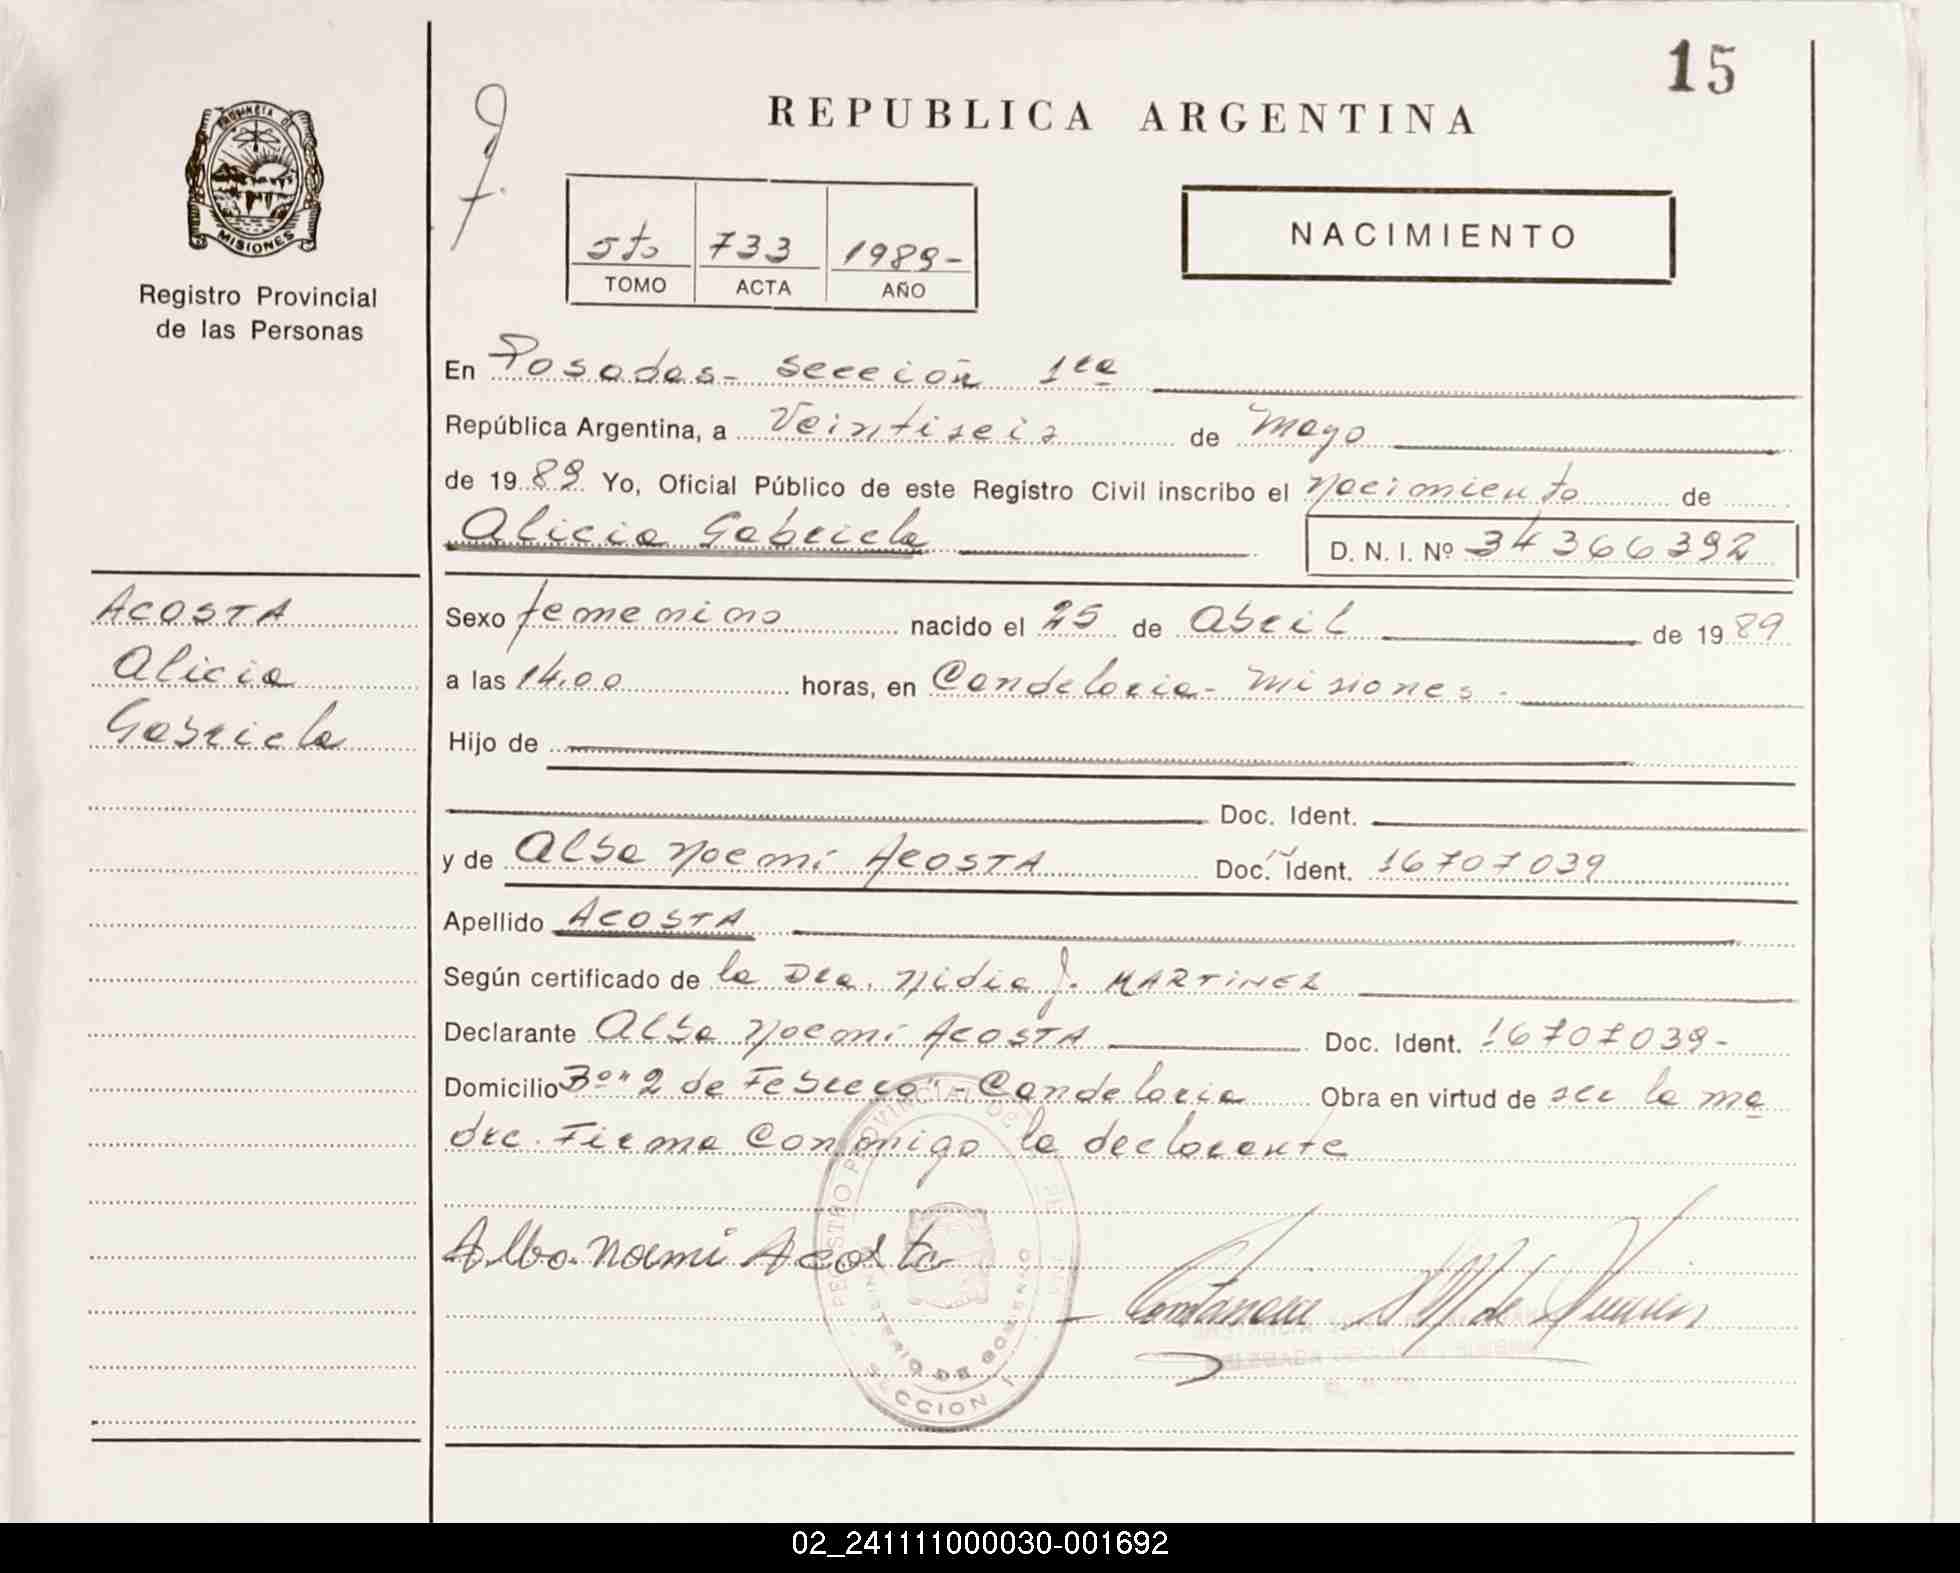 15
REPUBLICA ARGENTINA
PROVINCIA DE
MISIONES
Registro Provincial
de las Personas
5to 733 1989-
TOMO ACTA AÑO
NACIMIENTO
En Posadas - sección 1ra
República Argentina, a Veintiseis de Mayo
de 1989 Yo, Oficial Público de este Registro Civil inscribo el Nacimiento de
Alicia Gabriela D. N. I. Nº 34366392
ACOSTA
Alicia
Gabriela
Sexo femenino nacido el 25 de Abril de 1989
a las 14.00 horas, en Candelaria - Misiones -
Hijo de
Doc. Ident.
y de Alba Noemí ACOSTA Doc. Ident. 16707039
Apellido ACOSTA
Según certificado de la Dra. Nidia J. MARTINEZ
Declarante Alba Noemí ACOSTA Doc. Ident. 16707039-
Domicilio Bº "2 de Febrero" - Candelaria Obra en virtud de ser la ma
dre. Firma conmigo la declarante
Alba Noemi Acosta
REGISTRO PROVINCIAL DE
MINISTERIO DE GOBIERNO
SECCION 1
02_241111000030-001692